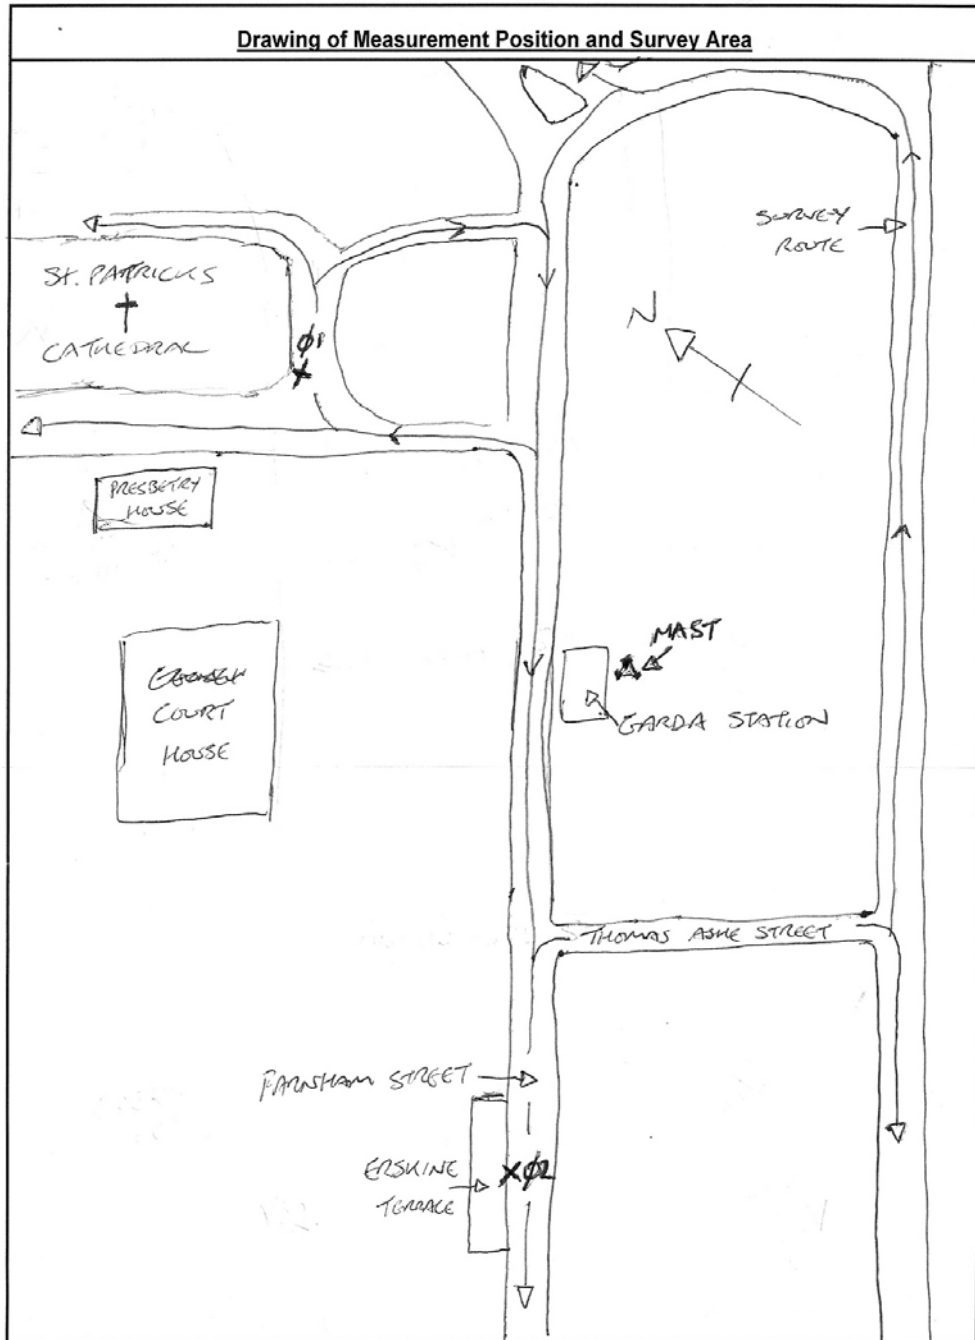 Drawing of Measurement Position and Survey Area
SURVEY
ROUTE
ST. PATRICKS
CATHEDRAL
N
Ø1
X
PRESBETRY
HOUSE
MAST
GARDA STATION
COURT
HOUSE
THOMAS ASHE STREET
FARNHAM STREET
ERSKINE
TERRACE
XØ2